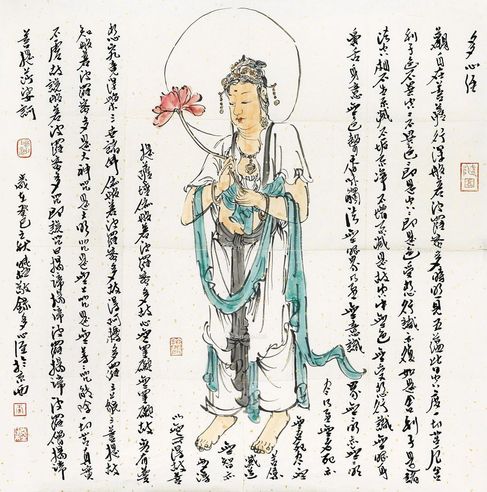 多心經
觀自在菩薩行深般若波羅蜜多時照見五蘊皆空度一切苦厄舍
利子色不異空空不異色色即是空空即是色受想行識亦復如是舍利子是諸
法空相不生不滅不垢不淨不增不減是故空中無色無受想行識無眼耳鼻
舌身意無色聲香味觸法無眼界乃至無意識
界無無明亦
盡乃至無老死亦
無老死盡無
苦集
滅道
無智亦
無得
以無所得故菩
提薩埵依般若波羅蜜多故心無罣礙無罣礙故無有
究竟涅槃三世諸佛依般若波羅蜜多故得阿耨多羅三藐三菩提故
知般若波羅蜜多是大神咒是大明咒是無上咒是無等等咒能除一切苦真實
不虛故說般若波羅蜜多咒即說咒曰揭諦揭諦波羅揭諦波羅僧揭諦
菩提薩婆訶
歲在癸巳之秋 錄多心經於京西